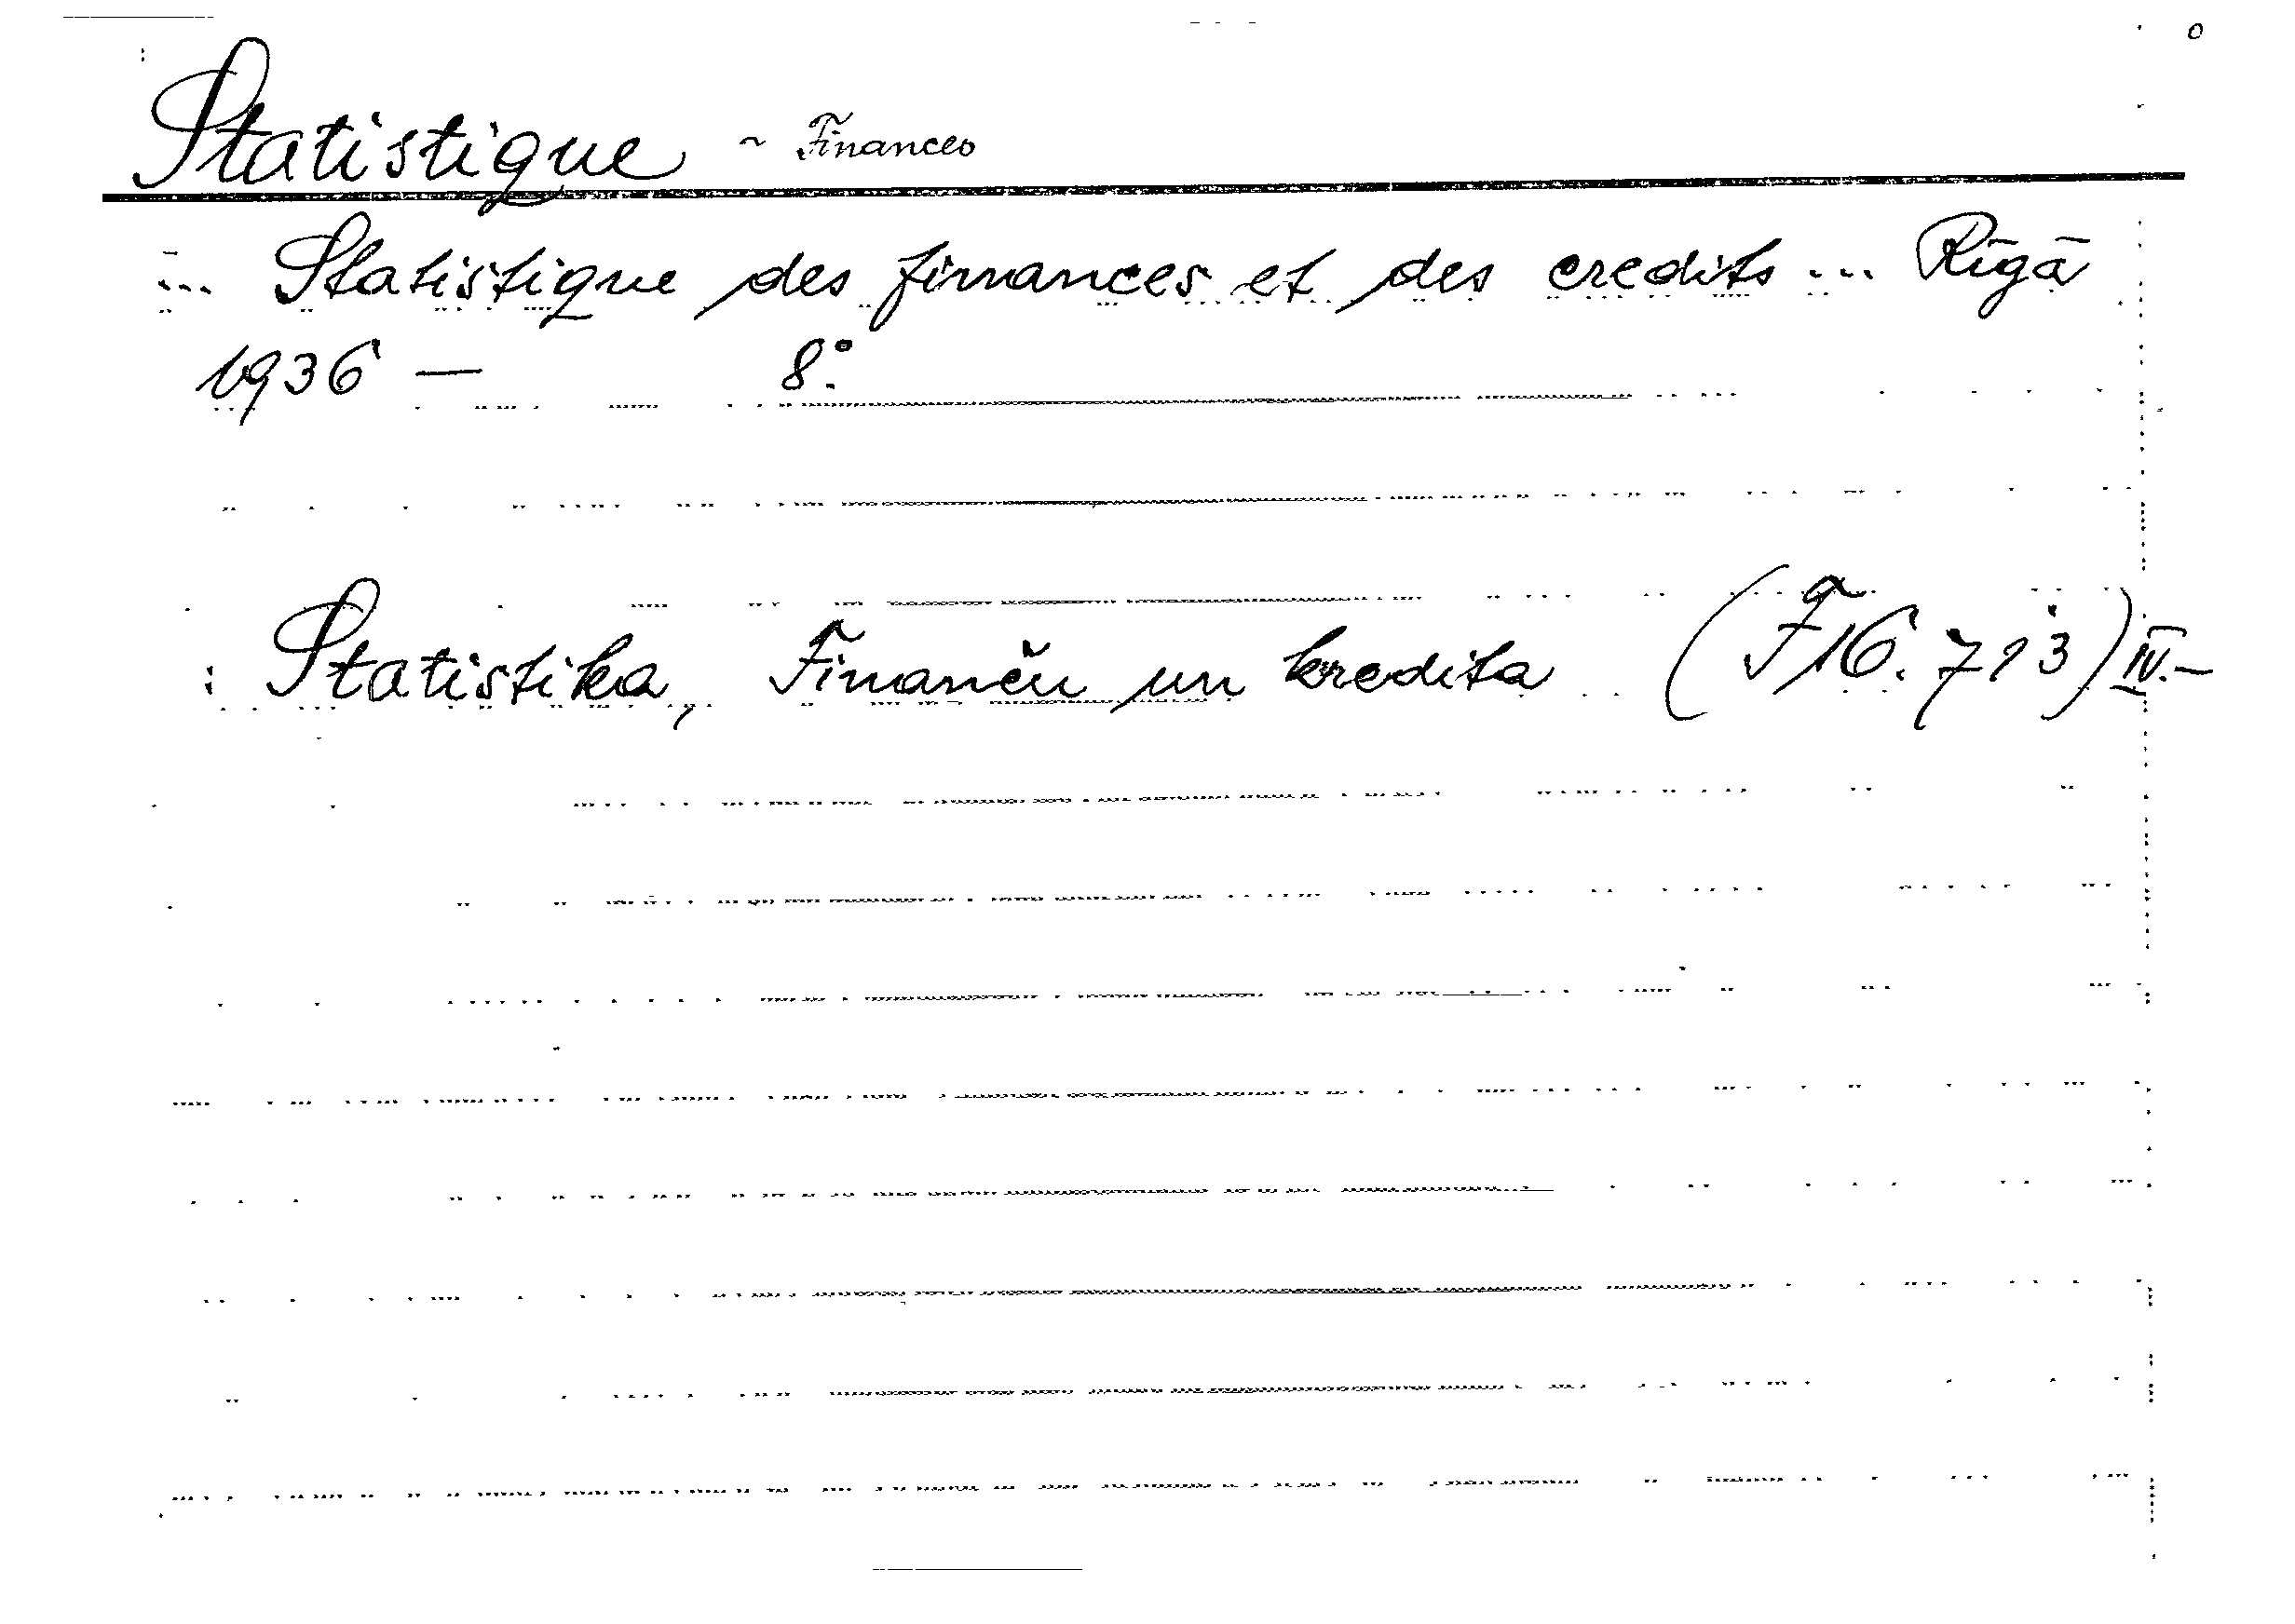 Statistique ~ Finances
... Statistique des finances et des credits ... Rīgā
1936 — 8°.
: Statistika, Finanču un kredita (F 16.713) IV.—